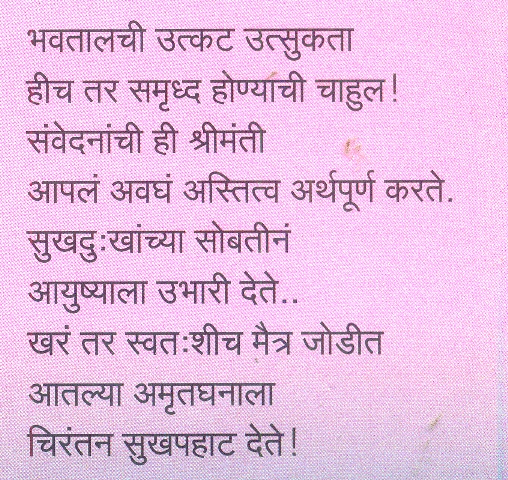 भवतालची उत्कट उत्सुकता
हीच तर समृध्द होण्याची चाहुल!
संवेदनांची ही श्रीमंती
आपलं अवघं अस्तित्व अर्थपूर्ण करते.
सुखदुःखांच्या सोबतीनं
आयुष्याला उभारी देते..
खरं तर स्वतःशीच मैत्र जोडीत
आतल्या अमृतघनाला
चिरंतन सुखपहाट देते!